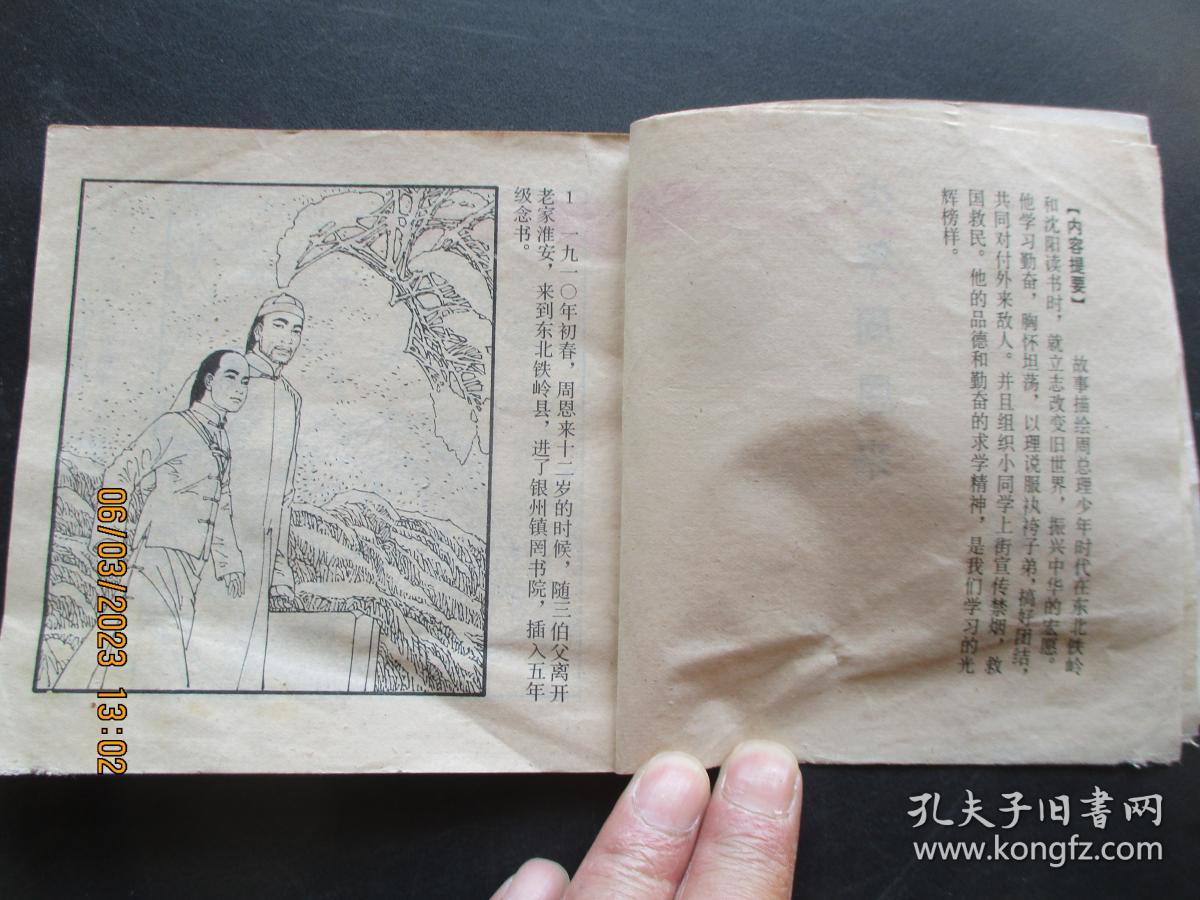 【内容提要】 故事描绘周总理少年时代在东北铁岭
和沈阳读书时，就立志改变旧世界，振兴中华的宏愿。
他学习勤奋，胸怀坦荡，以理说服纨袴子弟，搞好团结，
共同对付外来敌人。并且组织小同学上街宣传禁烟，救
国救民。他的品德和勤奋的求学精神，是我们学习的光
辉榜样。
1 一九一〇年初春，周恩来十二岁的时候，随三伯父离开
老家淮安，来到东北铁岭县，进了银州镇罔书院，插入五年
级念书。
06/03/2023 13:02
孔夫子旧書网
www.kongfz.com